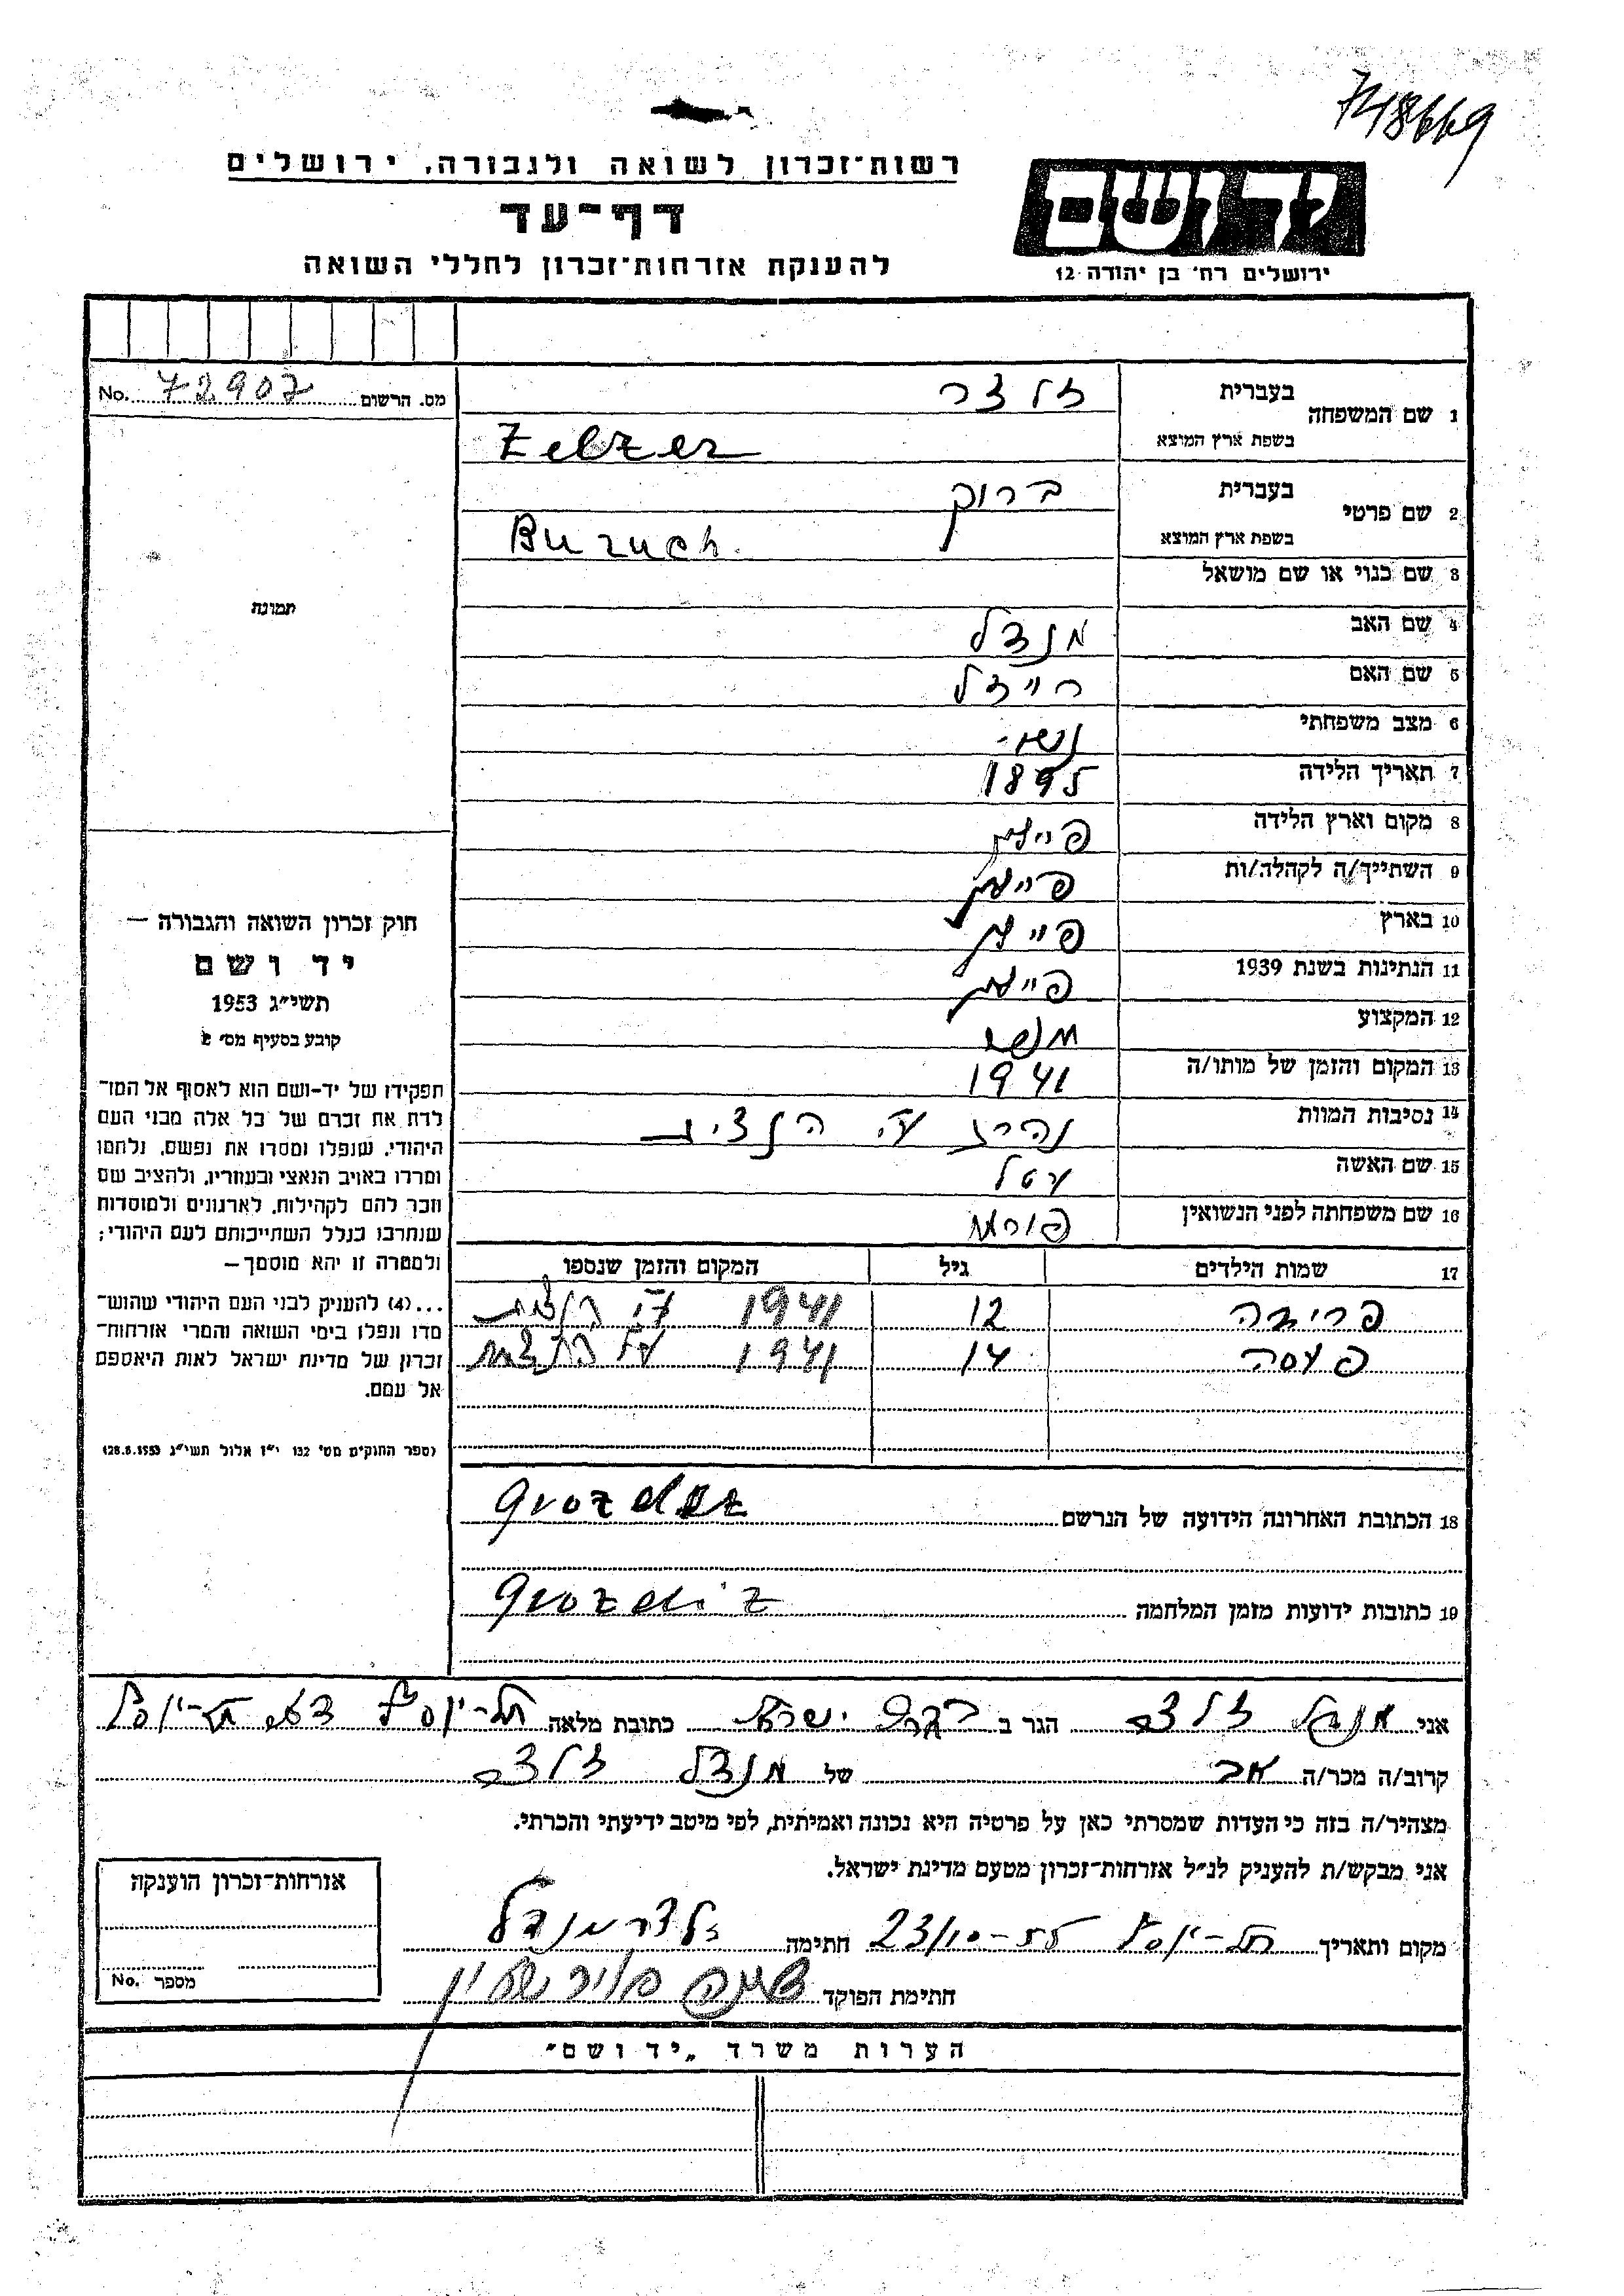 748669
רשות־זכרון לשואה ולגבורה, ירושלים
יד ושם
דף־עד
להענקת אזרחות־זכרון לחללי השואה
ירושלים רח׳ בן יהודה 12
מס. הרשום 72907 No.
1 שם המשפחה בעברית זלצר
בשפת ארץ המוצא Zelzer
2 שם פרטי בעברית ברוך
בשפת ארץ המוצא Buruch
3 שם כנוי או שם מושאל
תמונה
4 שם האב מנדל
5 שם האם רייזל
6 מצב משפחתי נשוי
7 תאריך הלידה 1895
8 מקום וארץ הלידה פוילין
9 השתייך/ה לקהלה/ות
10 בארץ
11 הנתינות בשנת 1939
12 המקצוע
13 המקום והזמן של מותו/ה 1941
14 נסיבות המוות נהרג ע״י הנצים
15 שם האשה עטל
16 שם משפחתה לפני הנשואין
17 שמות הילדים גיל המקום והזמן שנספו
פרידה 12 1941 ע״י הנצים
פעסה 14 1941 ע״י הנצים
חוק זכרון השואה והגבורה —
יד ושם
תשי״ג 1953
קובע בסעיף מס׳ 2
תפקידו של יד–ושם הוא לאסוף אל המו־
לדת את זכרם של כל אלה מבני העם
היהודי, שנפלו ומסרו את נפשם, נלחמו
ומרדו באויב הנאצי ובעוזריו, ולהציב שם
וזכר להם לקהילות, לארגונים ולמוסדות
שנחרבו בגלל השתייכותם לעם היהודי;
ולמטרה זו יהא מוסמך—
...(4) להעניק לבני העם היהודי שהוש־
מדו ונפלו בימי השואה והמרי אזרחות־
זכרון של מדינת ישראל לאות היאספם
אל עמם.
(ספר החוקים מס׳ 132 י״ז אלול תשי״ג 28.8.1953)
18 הכתובת האחרונה הידועה של הנרשם Gvozdez
19 כתובות ידועות מזמן המלחמה Gvozdiz
אני מנדל זלצר הגר ב ישראל כתובת מלאה תל-יוסף
קרוב/ה מכר/ה אב של מנדל זלצר
מצהיר/ה בזה כי העדות שמסרתי כאן על פרטיה היא נכונה ואמיתית, לפי מיטב ידיעתי והכרתי.
אני מבקש/ת להעניק לנ״ל אזרחות־זכרון מטעם מדינת ישראל.
מקום ותאריך תל-יוסף 23/10-55 חתימה זלצר מנדל
חתימת הפוקד
אזרחות־זכרון הוענקה
מספר No.
הערות משרד „יד ושם״